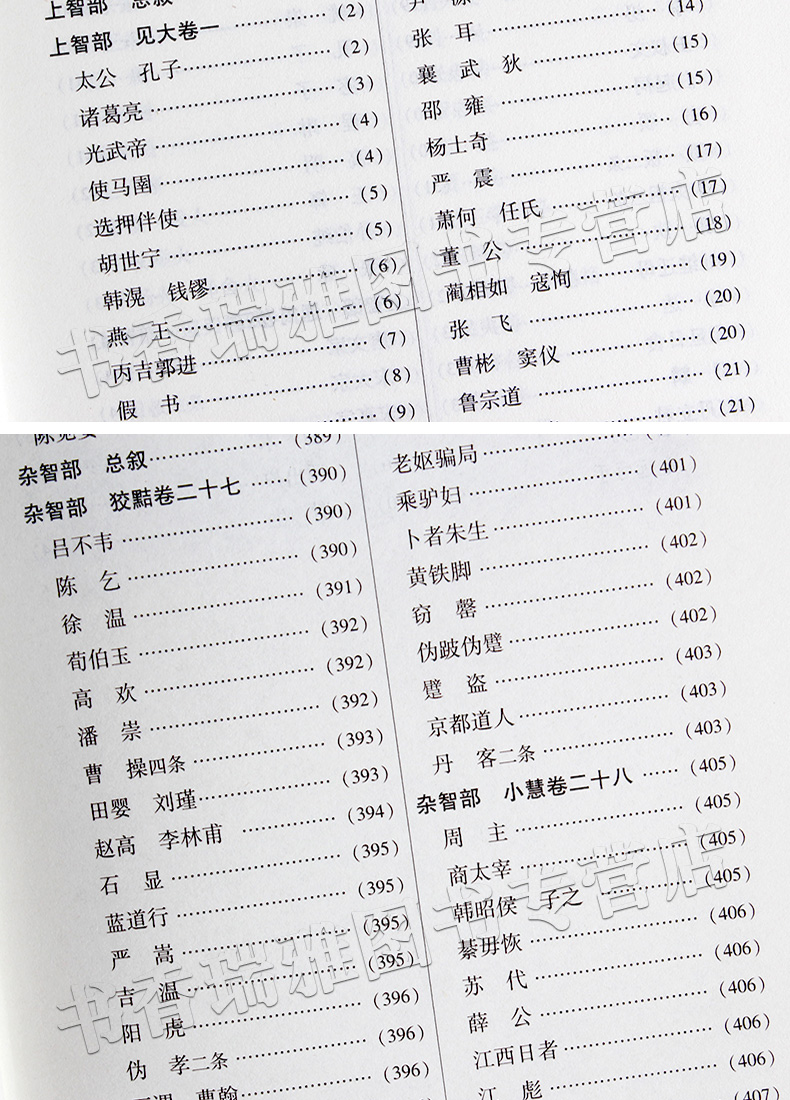 上智部 总叙 (2)
上智部 见大卷一 (2)
太公 孔子 (2)
诸葛亮 (3)
光武帝 (4)
使马圉 (4)
选押伴使 (5)
胡世宁 (5)
韩滉 钱镠 (6)
燕 王 (6)
丙吉郭进 (7)
假 书 (8)
(9)
(14)
张 耳 (15)
襄 武 狄 (15)
邵 雍 (16)
杨士奇 (17)
严 震 (17)
萧何 任氏 (18)
董 公 (19)
蔺相如 寇恂 (20)
张 飞 (20)
曹彬 窦仪 (21)
鲁宗道 (21)
书香瑞雅图书专营店
(389)
杂智部 总叙 (390)
杂智部 狡黠卷二十七 (390)
吕不韦 (390)
陈 乞 (391)
徐 温 (392)
荀伯玉 (392)
高 欢 (392)
潘 崇 (393)
曹 操四条 (393)
田婴 刘瑾 (394)
赵高 李林甫 (395)
石 显 (395)
蓝道行 (395)
严 嵩 (395)
吉 温 (396)
阳 虎 (396)
伪 孝二条 (396)
曹翰
老妪骗局 (401)
乘驴妇 (401)
卜者朱生 (402)
黄铁脚 (402)
窃 磬 (402)
伪跛伪躄 (403)
躄 盗 (403)
京都道人 (403)
丹 客二条 (405)
杂智部 小慧卷二十八 (405)
周 主 (405)
商太宰 (405)
韩昭侯 子之 (406)
綦毋恢 (406)
苏 代 (406)
薛 公 (406)
江西日者 (406)
江 彪 (407)
书香瑞雅图书专营店